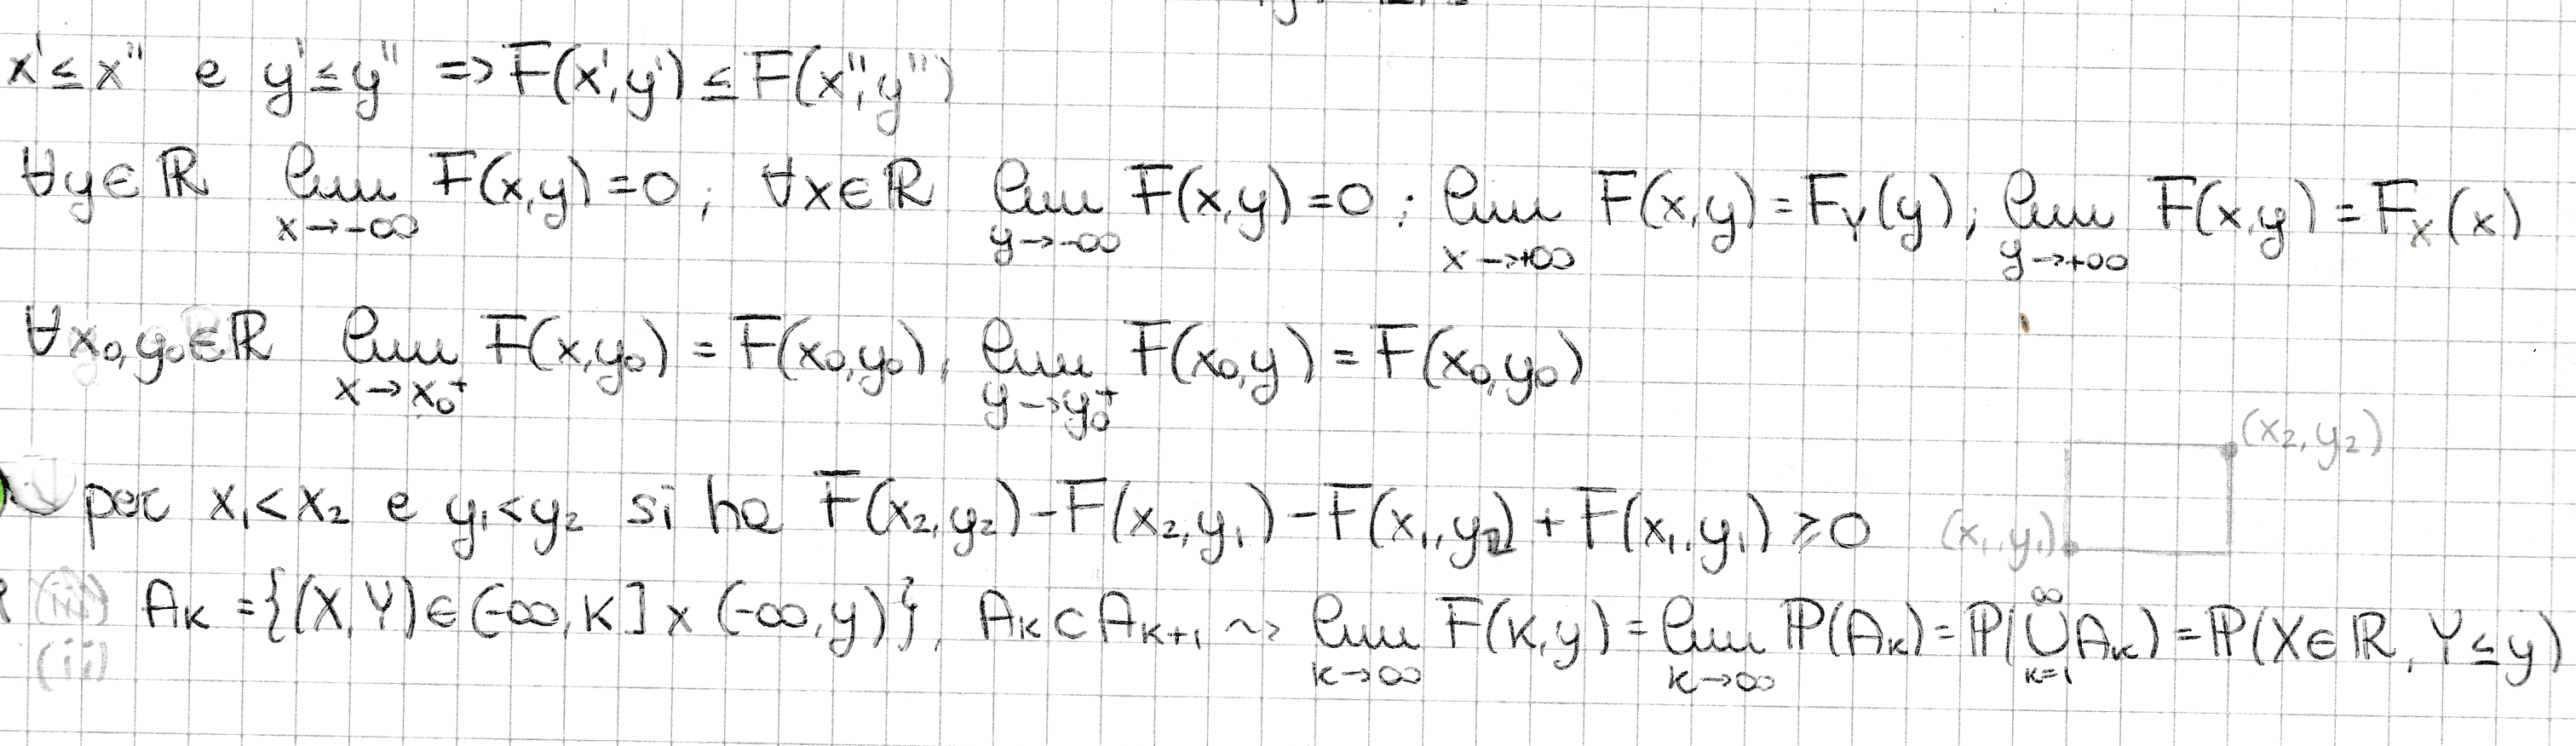 x' ≤ x'' e y' ≤ y'' => F(x',y') ≤ F(x'',y'')
∀y∈ℝ lim_{x→-∞} F(x,y)=0; ∀x∈ℝ lim_{y→-∞} F(x,y)=0; lim_{x→+∞} F(x,y)=F_Y(y); lim_{y→+∞} F(x,y)=F_X(x)
∀x₀,y₀∈ℝ lim_{x→x₀⁺} F(x,y₀) = F(x₀,y₀), lim_{y→y₀⁺} F(x₀,y) = F(x₀,y₀)
(x₂,y₂)
per x₁<x₂ e y₁<y₂ si ha F(x₂,y₂)-F(x₂,y₁)-F(x₁,y₂)+F(x₁,y₁)≥0 (x₁,y₁)
(iii) A_K = {(X,Y)∈(-∞,K]×(-∞,y)}, A_K⊂A_{K+1} ~> lim_{k→∞} F(K,y) = lim_{k→∞} ℙ(A_K) = ℙ(⋃_{k=1}^{∞} A_K) = ℙ(X∈ℝ, Y≤y)
(ii)